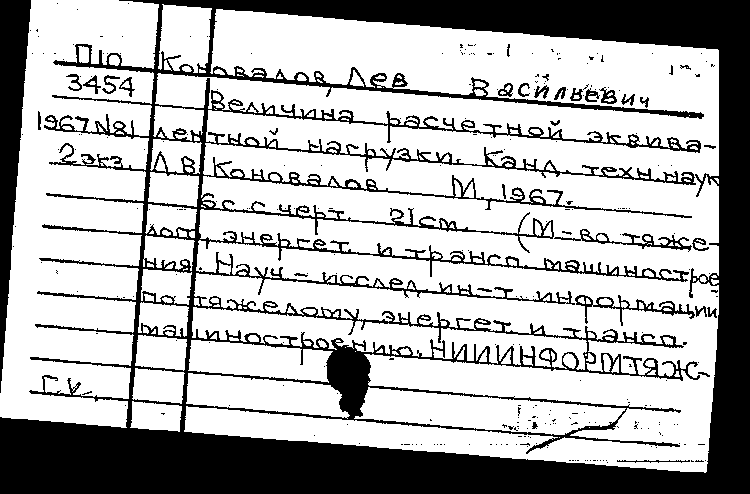 П10 Коновалов, Лев Васильевич
3454 Величина расчетной эквива-
1967N81 лентной нагрузки. Канд. техн. наук
2экз. Л.В. Коновалов. М., 1967.
6с. с черт. 21см. (М-во тяже-
лог., энергет. и трансп. машинострое
ния. Науч-исслед. ин-т. информации
по тяжелому, энергет. и трансп.
машиностроению. НИИИНФОРМТЯЖ-